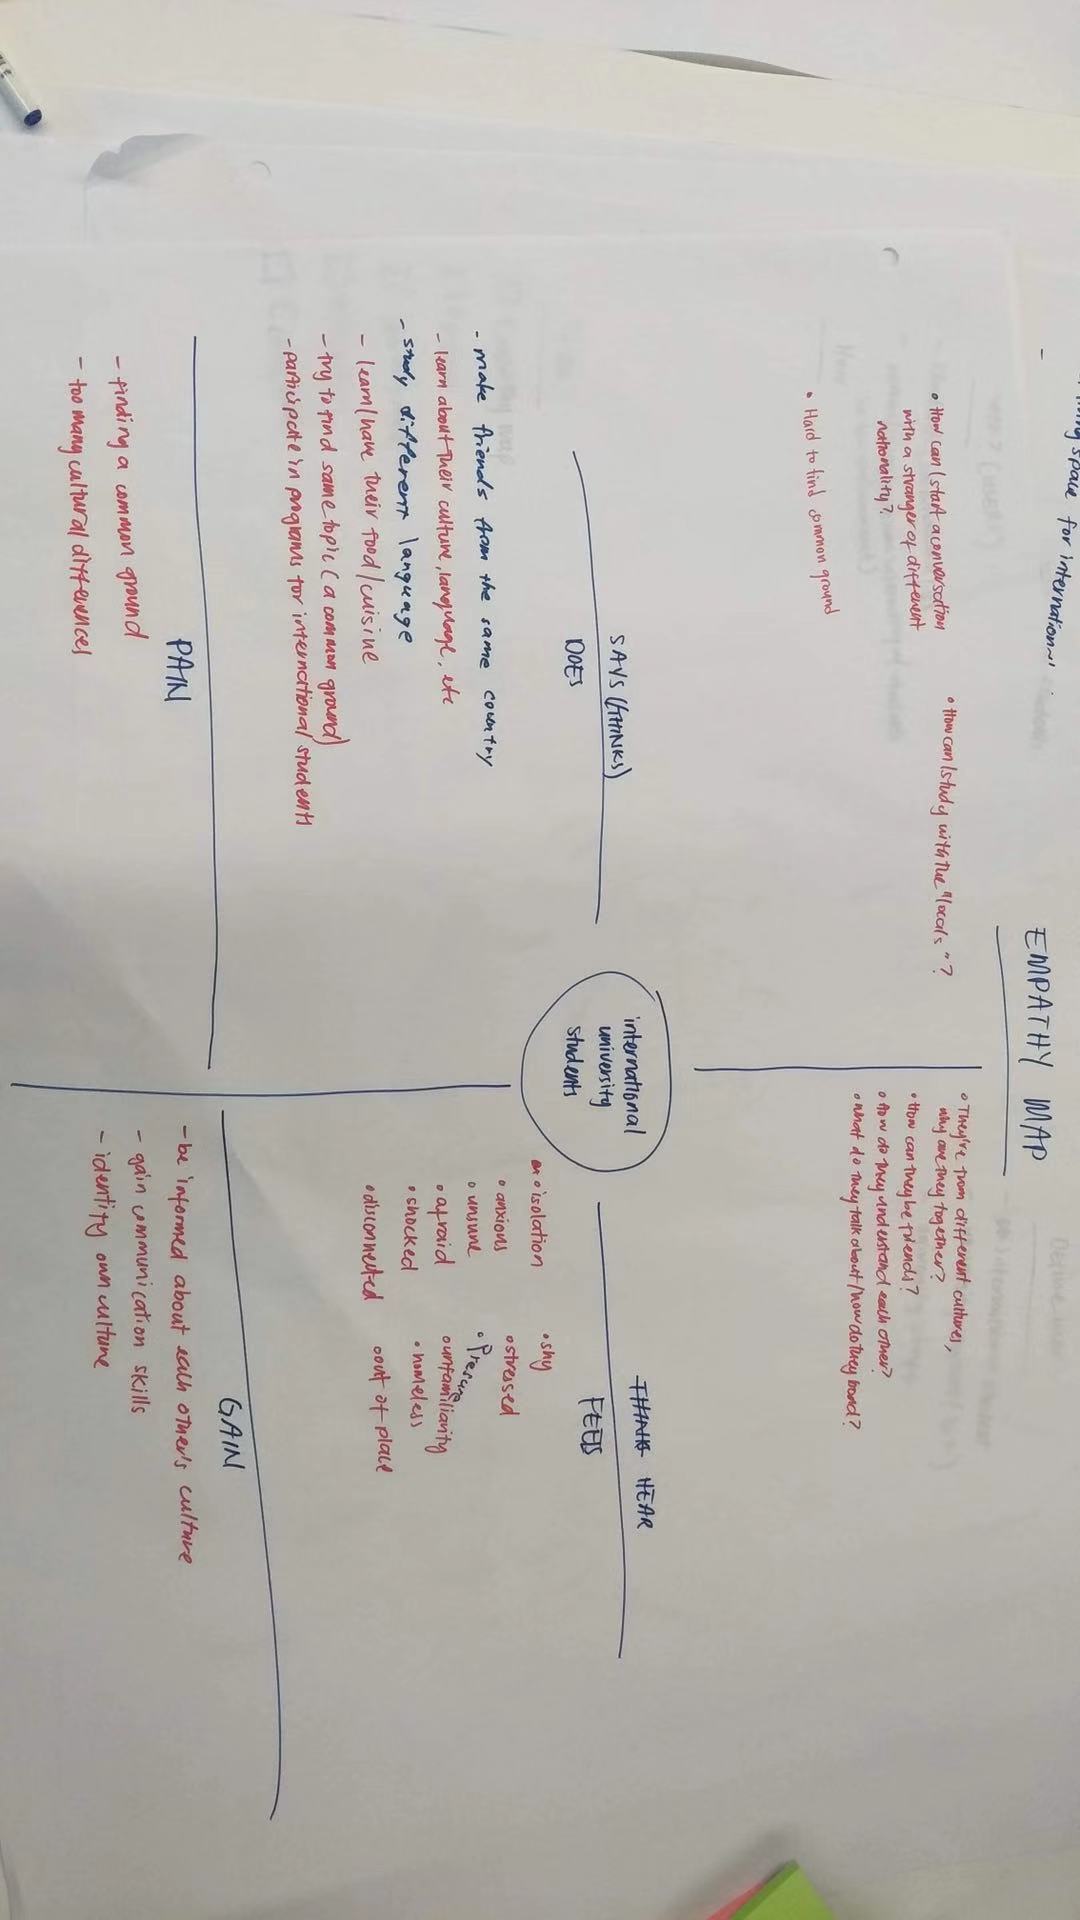 space for international
EMPATHY MAP
• How can I start a conversation
with a stranger of different
nationality?
• How can I study with the "locals"?
• Hard to find common ground
• They're from different cultures,
why are they together?
• How can they be friends?
• How do they understand each other?
• what do they talk about/how do they bond?
SAYS (THINKS)
DOES
HEAR
FEELS
international
university
students
- make friends from the same country
- learn about their culture, language, etc
- study different language
- learn/have their food/cuisine
- try to find same topic (a common ground)
- participate in programs for international students
• isolation
• anxious
• unsure
• afraid
• shocked
• disconnected
• shy
• stressed
• Presure
• unfamiliarity
• homeless
• out of place
PAIN
- finding a common ground
- too many cultural differences
GAIN
- be informed about each other's culture
- gain communication skills
- identity own culture